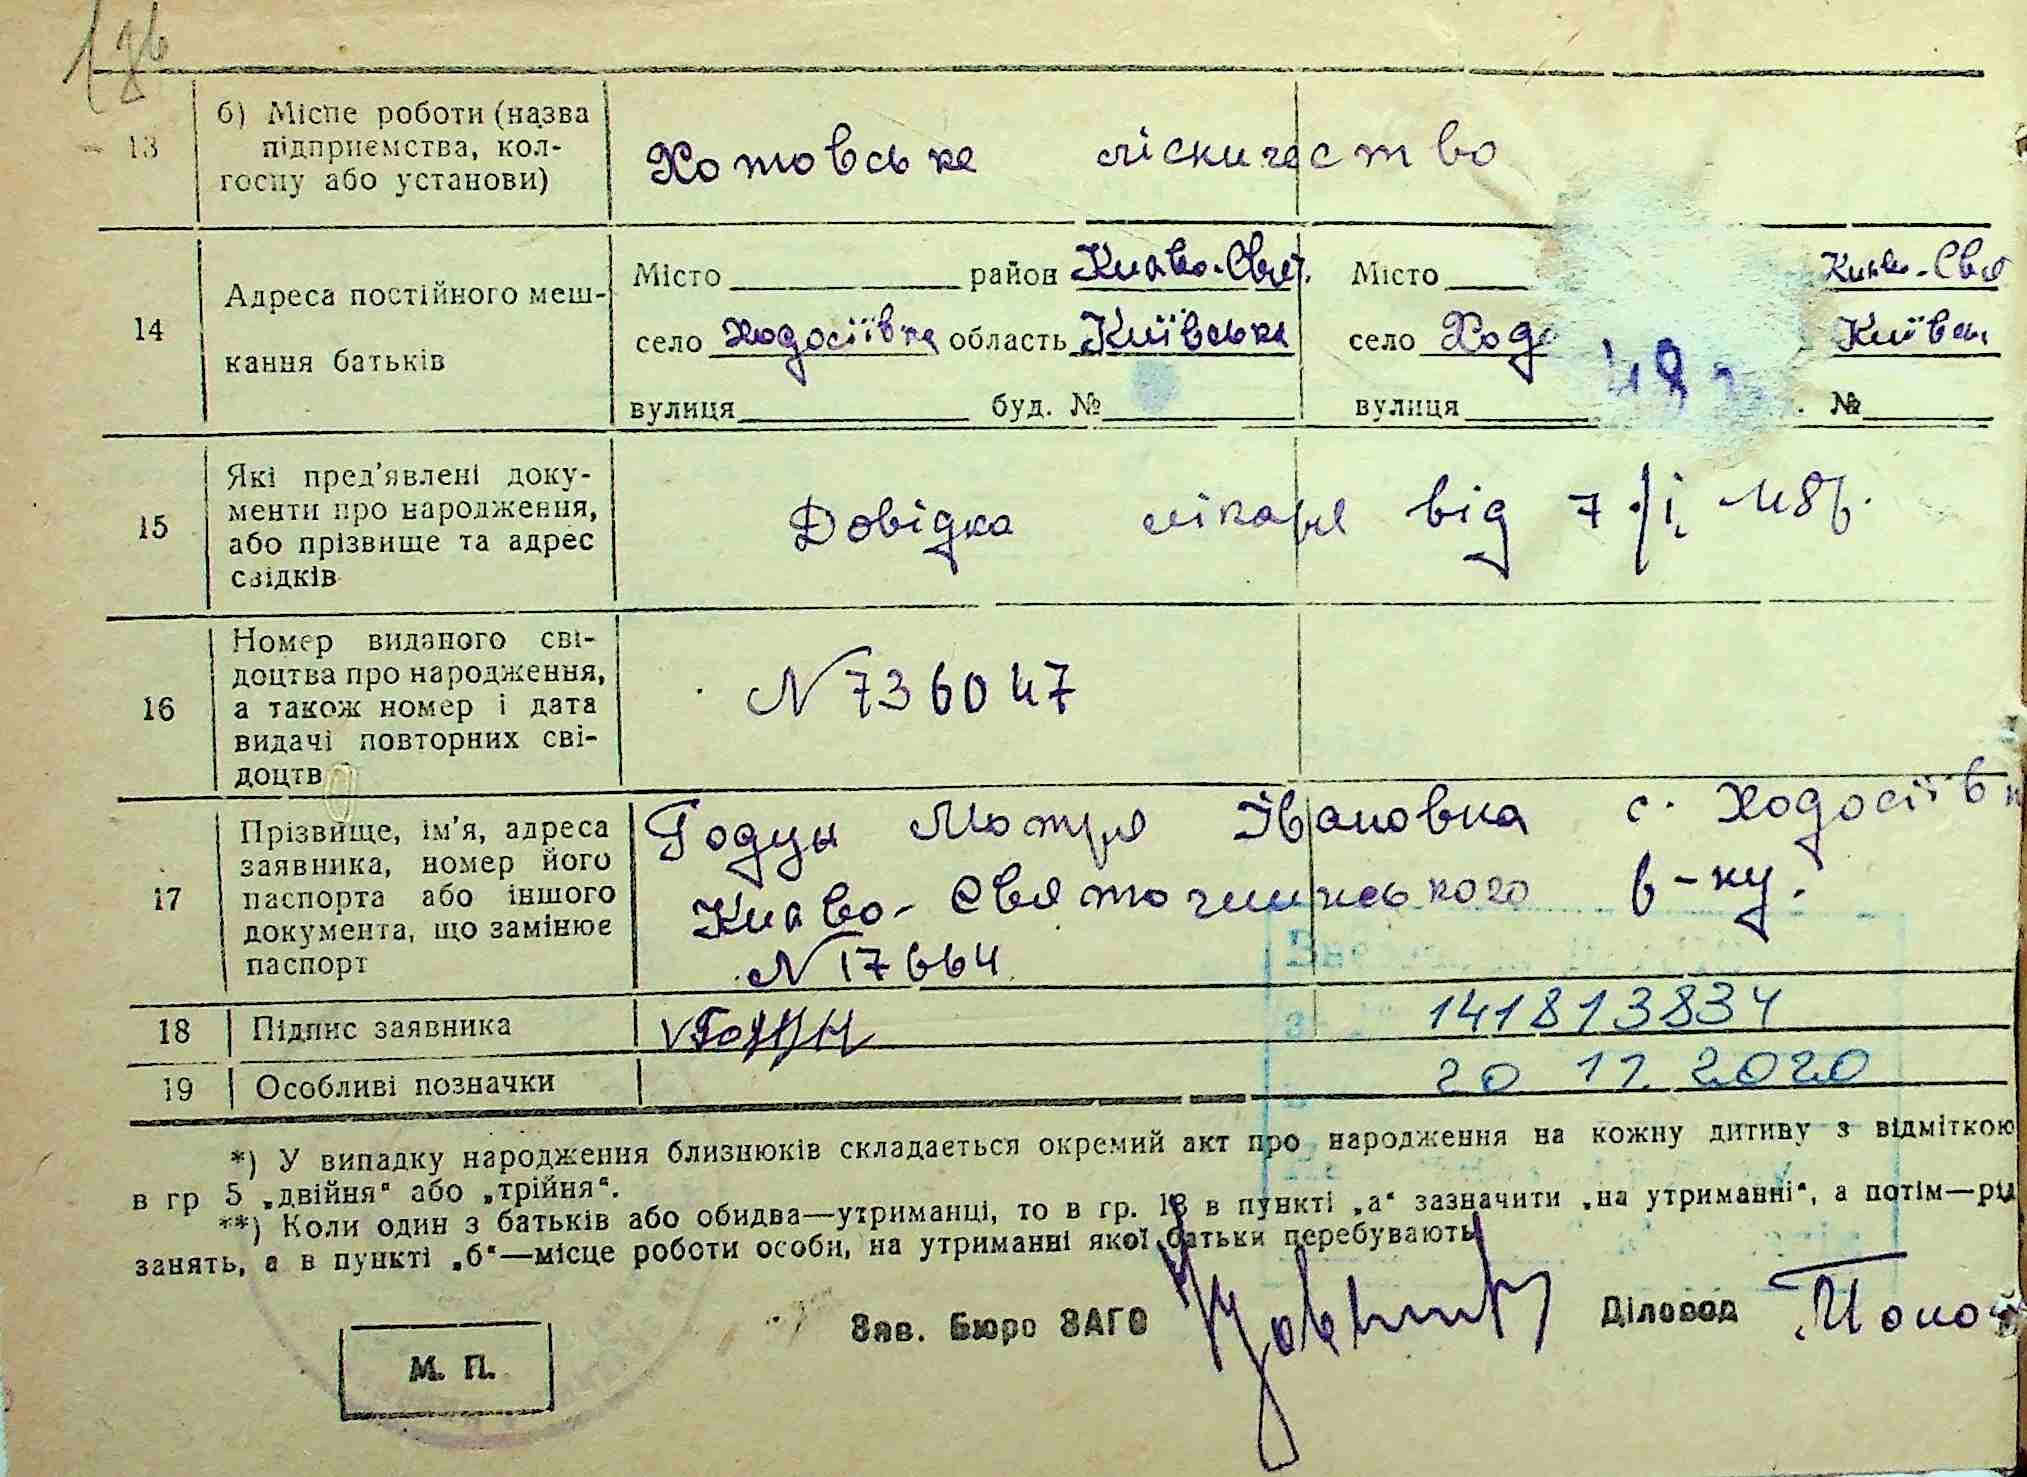 186
13 б) Місце роботи (назва підприємства, колгоспу або установи)
Хотовське лісничество
14 Адреса постійного мешкання батьків
Місто район Києво-Свят. Місто Києво-Свя
село Ходосіївка область Київська село Ходо Київсь
вулиця буд. № вулиця №
15 Які пред'явлені документи про народження, або прізвище та адрес свідків
Довідка лікаря від 7/І 48р.
16 Номер виданого свідоцтва про народження, а також номер і дата видачі повторних свідоцтв
N 736047
17 Прізвище, ім'я, адреса заявника, номер його паспорта або іншого документа, що замінює паспорт
Годун Мотря Івановна с. Ходосіївк
Києво-Святошинського р-ну.
N 17664
18 Підпис заявника
141813834
19 Особливі позначки
20 11. 2020
*) У випадку народження близнюків складається окремий акт про народження на кожну дитину з відміткою
в гр 5 „двійня“ або „трійня“.
**) Коли один з батьків або обидва—утриманці, то в гр. 13 в пункті „а“ зазначити „на утриманні“, а потім—рід
занять, а в пункті „б“—місце роботи особи, на утриманні якої батьки перебувають
Зав. Бюро ЗАГС Діловод
М. П.